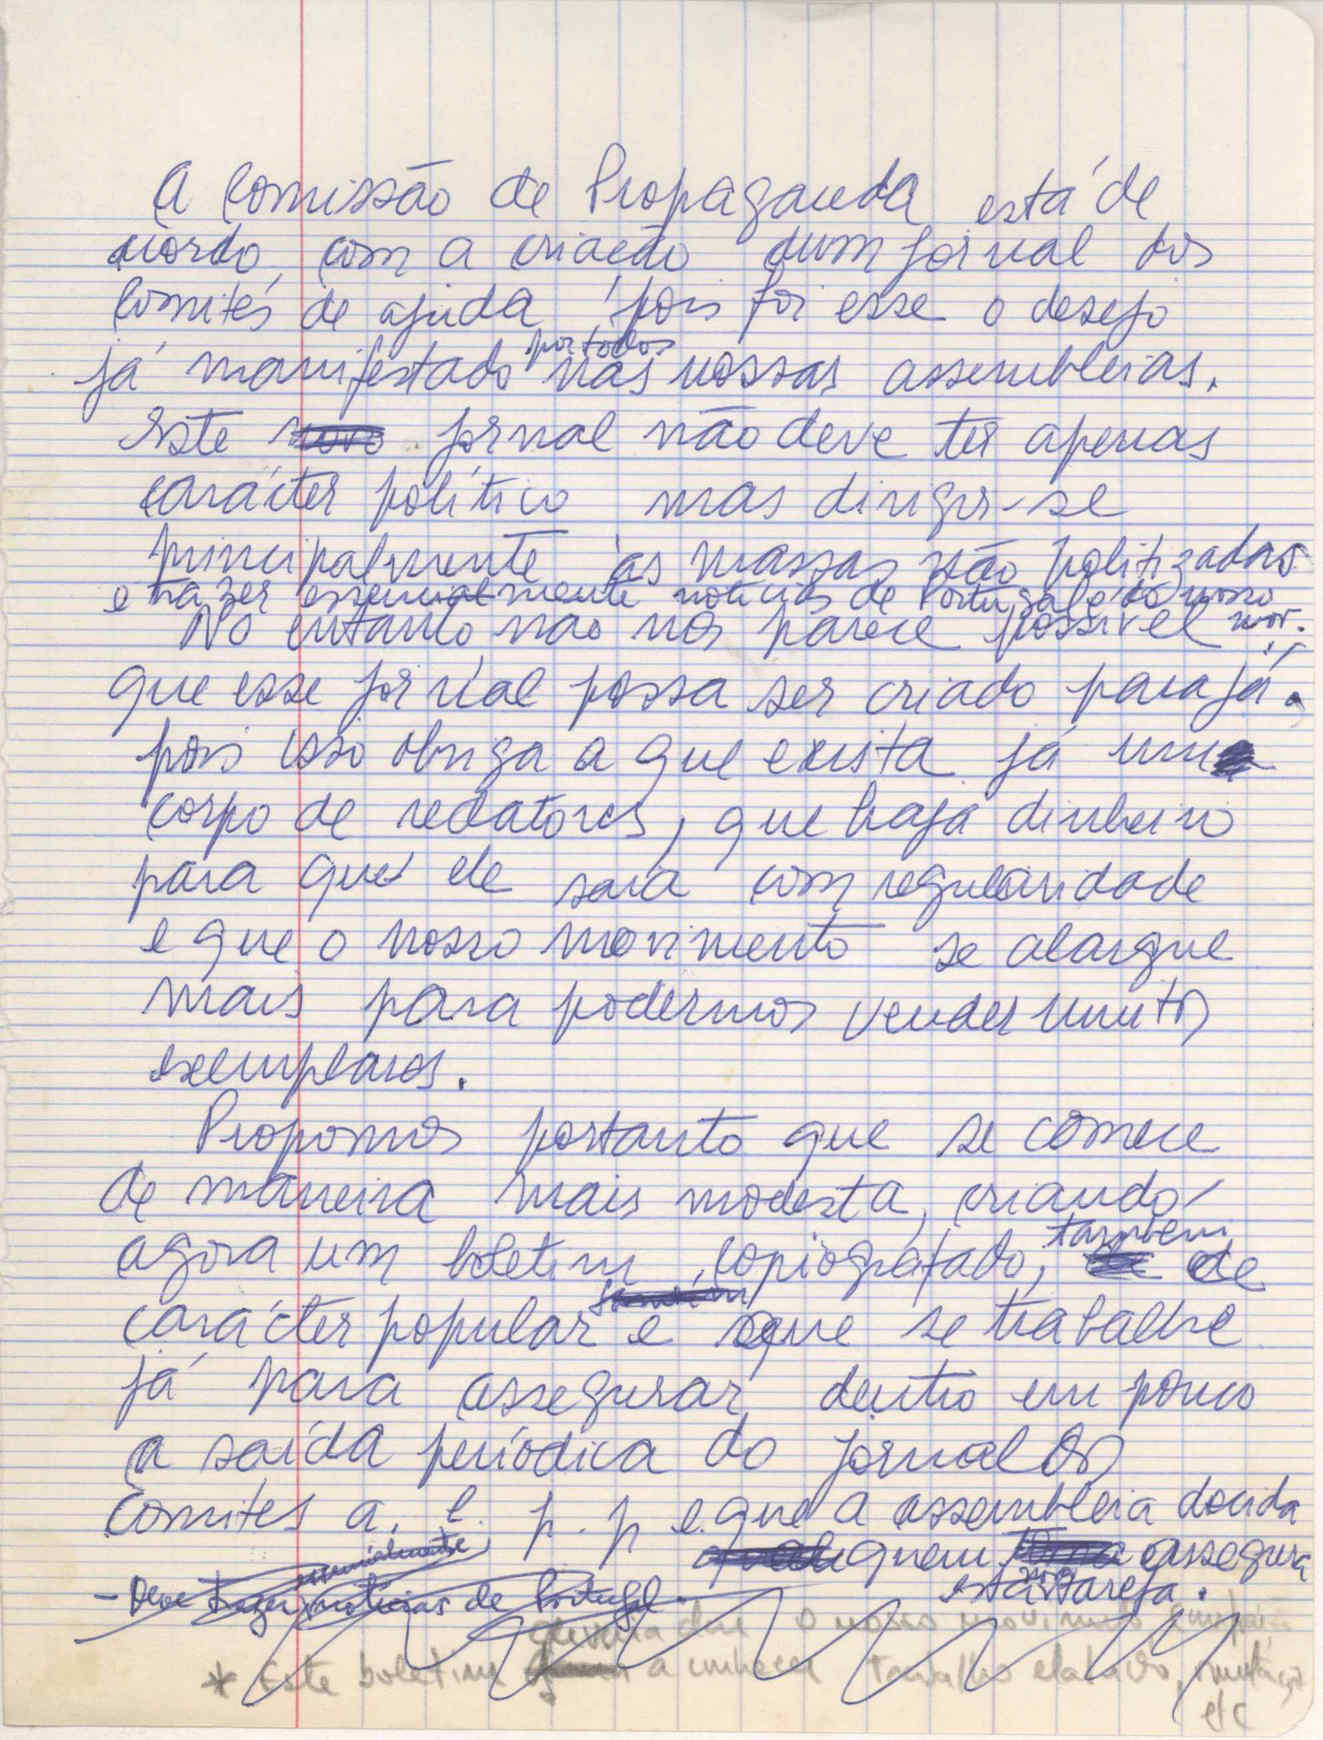 A Comissão de Propaganda está de
acordo com a criação dum jornal dos
Comités de ajuda pois foi esse o desejo
já manifestado por todos nas nossas assembleias.
Este novo jornal não deve ter apenas
carácter político mas dirigir-se
principalmente às massas não politizadas
e trazer essencialmente notícias de Portugal e do nosso mov.
No entanto não nos parece possível
que esse jornal possa ser criado para já.
pois isso obriga a que exista já um
corpo de redatores, que haja dinheiro
para que ele saia com regularidade
e que o nosso movimento se alargue
mais para podermos vender muitos
exemplares.
Propomos portanto que se comece
de maneira mais modesta, criando
agora um boletim copiografado, também de
carácter popular e que se trabalhe
já para assegurar dentro em pouco
a saída periódica do jornal dos
Comités a. l. p. p e que a assembleia decida
quem assegura
esta tarefa.
- Deve trazer essencialmente notícias de Portugal.
deveria dar o nosso movimento
* Este boletim a conhecer trabalho
etc